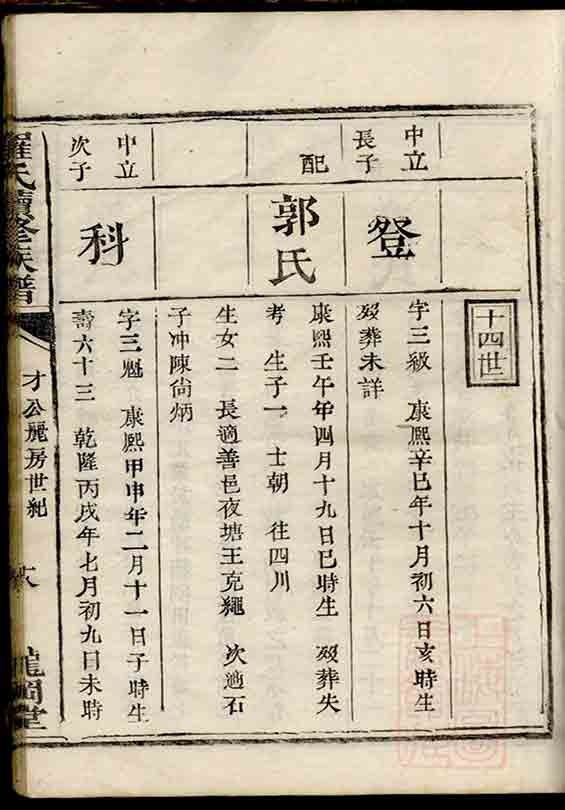 十四世
中立
長子
登
字三級　康熙辛巳年十月初六日亥時生
歿葬未詳
配
郭氏
康熙壬午年四月十九日巳時生　歿葬失
考　生子一　士朝　往四川
生女二　長適善邑夜塘王克繩　次適石
子冲陳尙炳
中立
次子
科
字三魁　康熙甲申年二月十一日子時生
壽六十三　乾隆丙戌年七月初九日未時
羅氏續修族譜
才公麗房世紀
龍岡堂